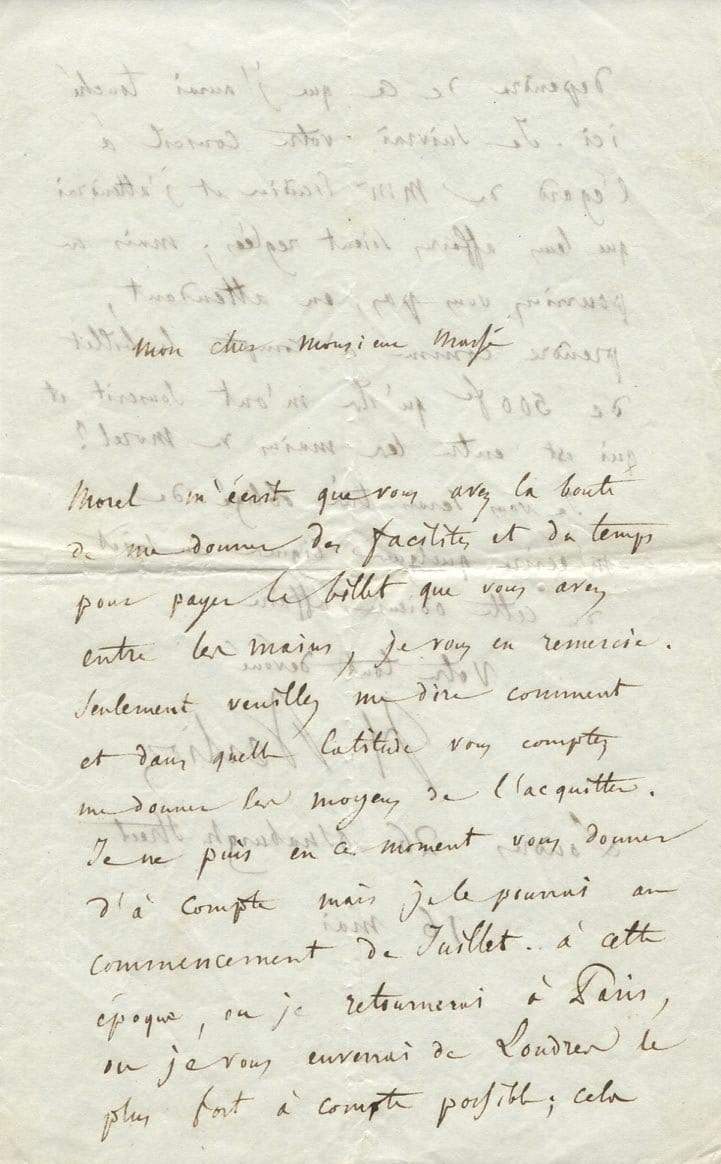 mon cher monsieur Massé
Morel m'écrit que vous avez la bonté
de me donner des facilités et du temps
pour payer le billet que vous avez
entre les mains, je vous en remercie.
Seulement veuillez me dire comment
et dans quelle latitude vous comptez
me donner les moyens de l'acquitter.
Je ne puis en ce moment vous donner
d'à compte mais je le pourrai au
commencement de Juillet. à cette
époque, ou je retournerai à Paris,
ou je vous enverrai de Londres le
plus fort à compte possible; cela